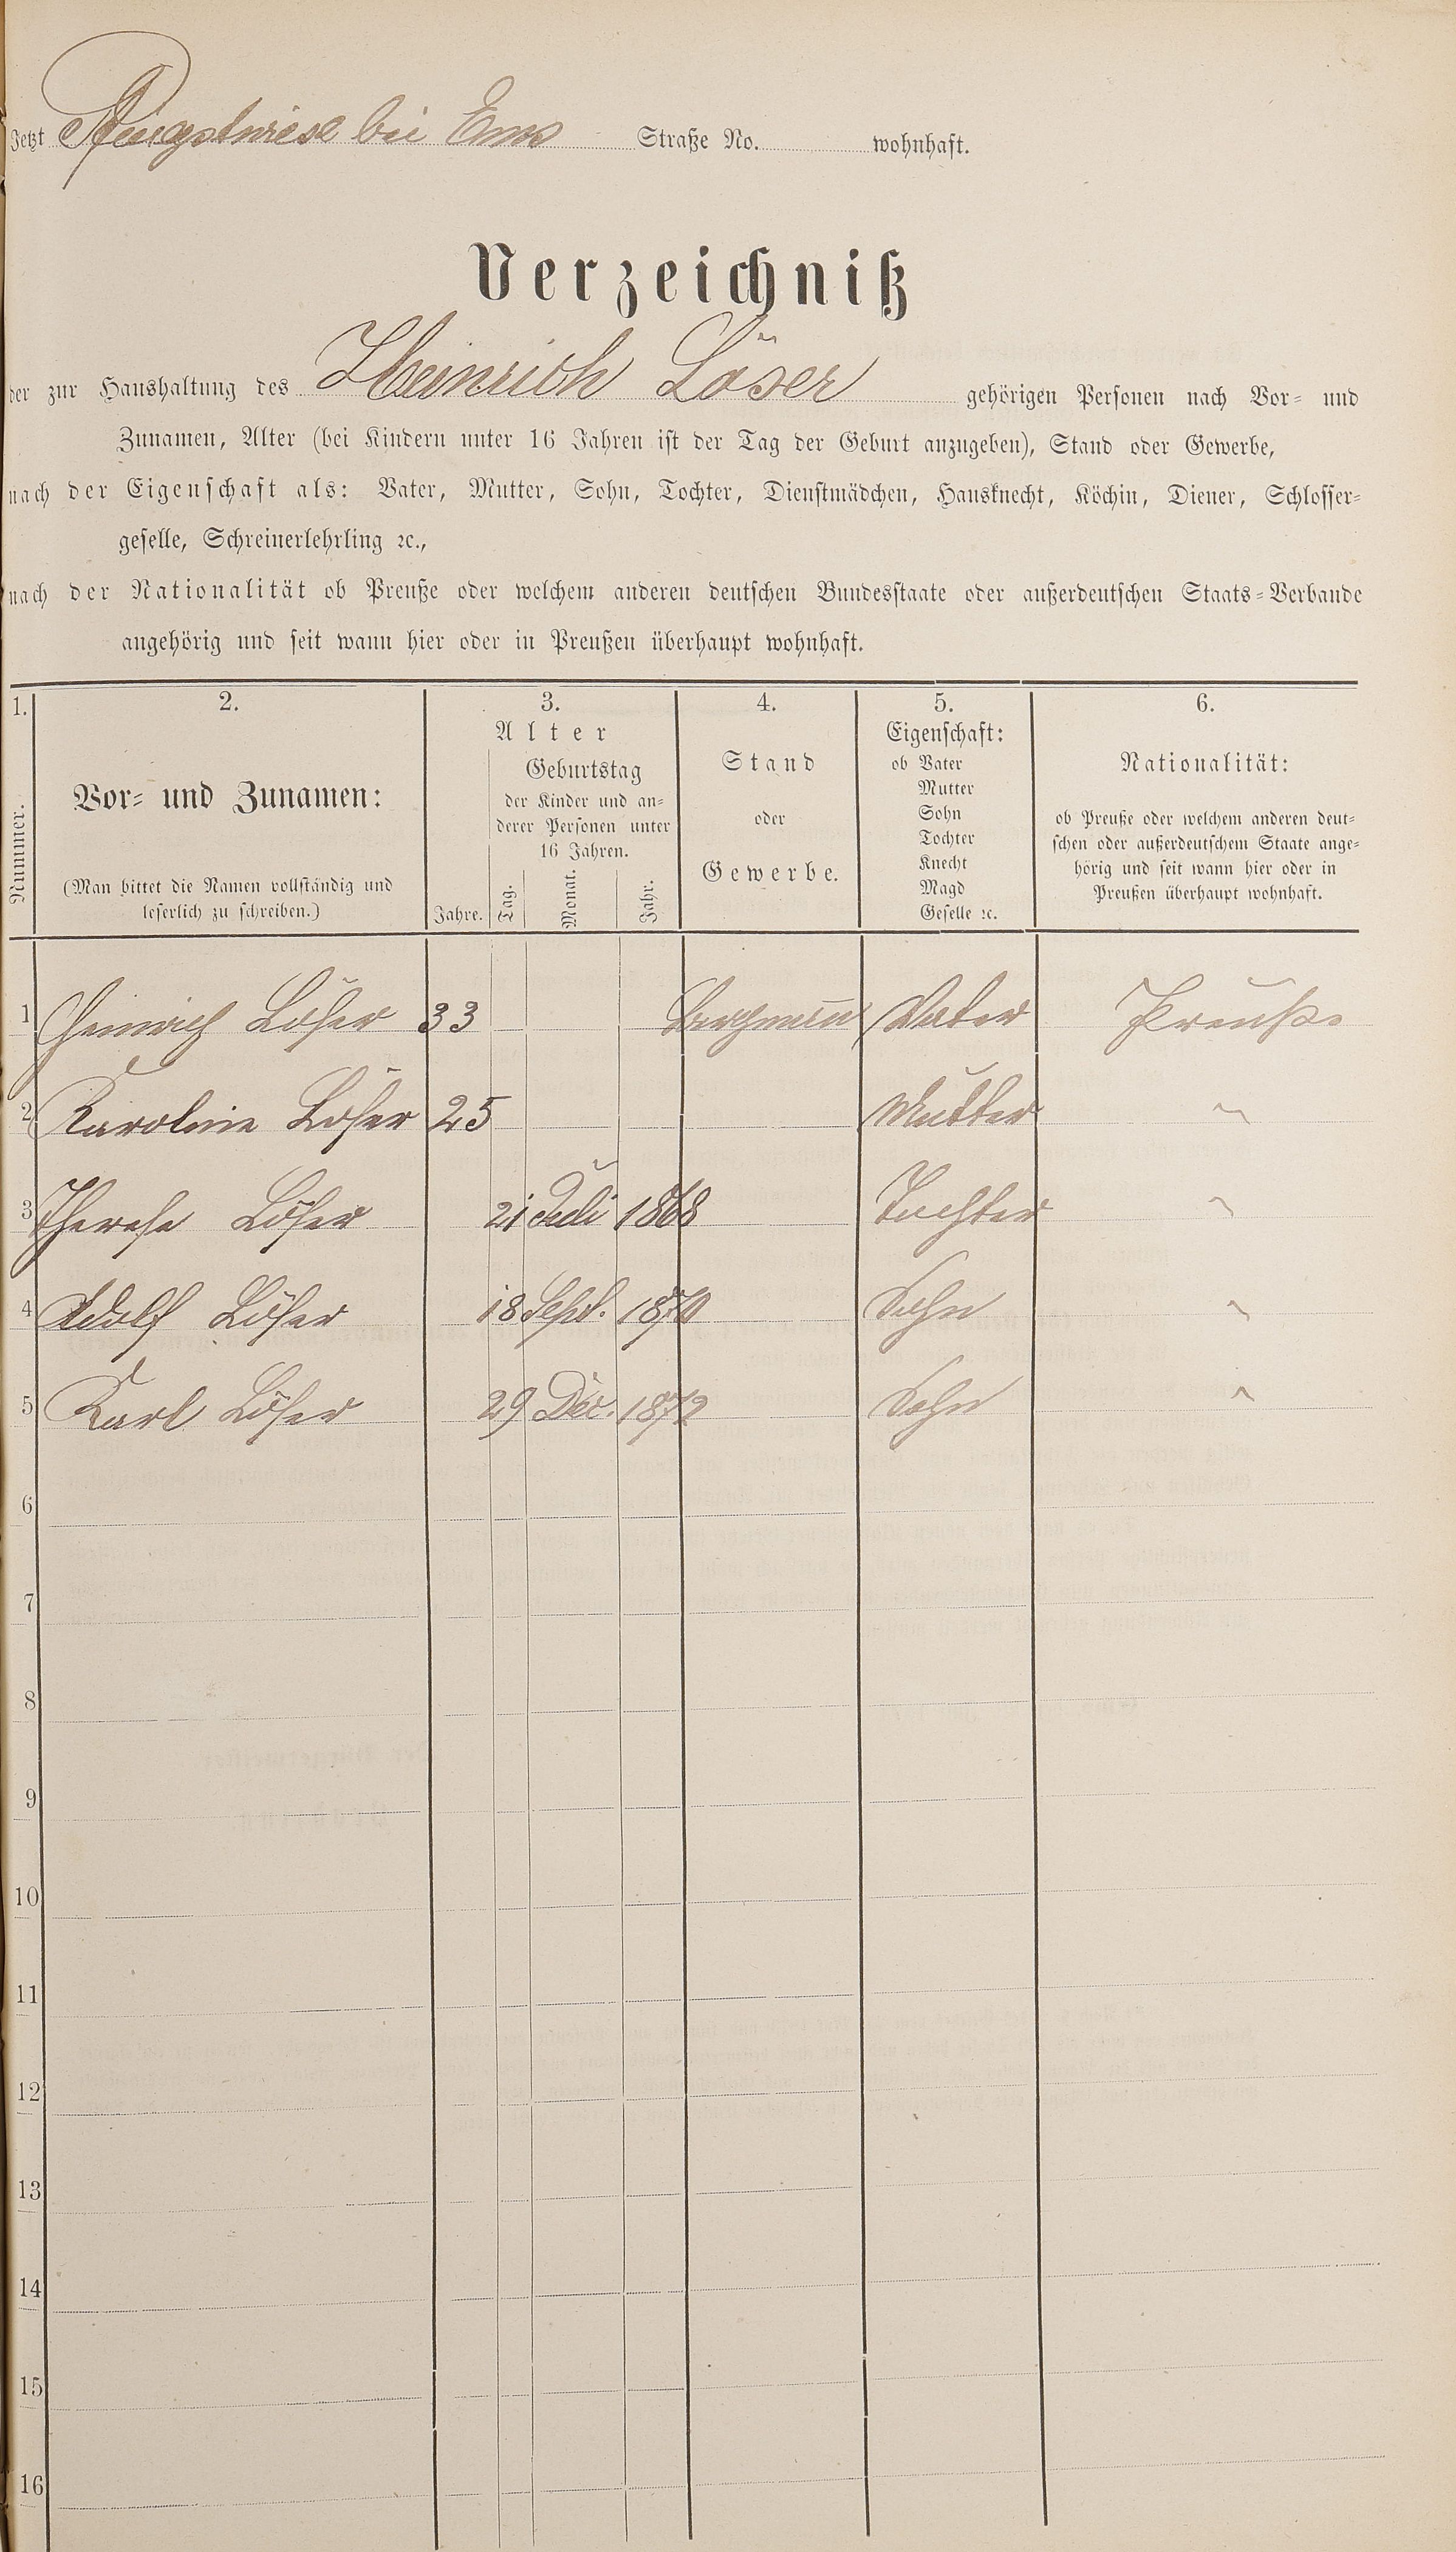 Jetzt Pfingstwiese bei Ems Straße No. wohnhaft.
Verzeichniß
der zur Haushaltung des Heinrich Löser gehörigen Personen nach Vor- und
Zunamen, Alter (bei Kindern unter 16 Jahren ist der Tag der Geburt anzugeben), Stand oder Gewerbe,
nach der Eigenschaft als: Vater, Mutter, Sohn, Tochter, Dienstmädchen, Hausknecht, Köchin, Diener, Schlosser-
geselle, Schreinerlehrling ꝛc.,
nach der Nationalität ob Preuße oder welchem anderen deutschen Bundesstaate oder außerdeutschen Staats-Verbande
angehörig und seit wann hier oder in Preußen überhaupt wohnhaft.
1. 2. 3. 4. 5. 6.
Nummer.
Vor- und Zunamen:
(Man bittet die Namen vollständig und
leserlich zu schreiben.)
Alter
Jahre.
Geburtstag
der Kinder und an-
derer Personen unter
16 Jahren.
Tag. Monat. Jahr.
Stand
oder
Gewerbe.
Eigenschaft:
ob Vater
Mutter
Sohn
Tochter
Knecht
Magd
Geselle ꝛc.
Nationalität:
ob Preuße oder welchem anderen deut-
schen oder außerdeutschem Staate ange-
hörig und seit wann hier oder in
Preußen überhaupt wohnhaft.
1 Heinrich Löser 33 Bergmann Vater Preuße
2 Karoline Löser 25 Mutter "
3 Therese Löser 21 Juli 1868 Tochter "
4 Adolf Löser 18 Sept. 1870 Sohn "
5 Karl Löser 29 Dec. 1872 Sohn "
6
7
8
9
10
11
12
13
14
15
16